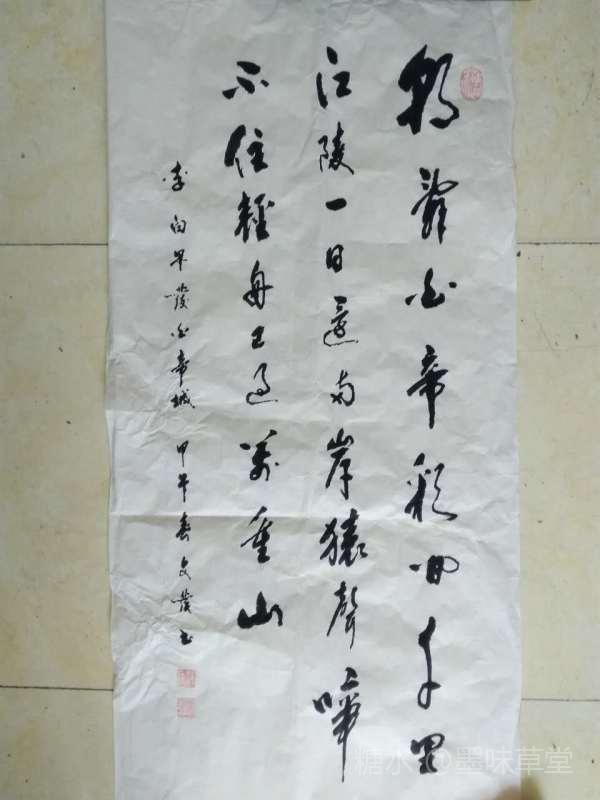 朝辞白帝彩间千里
江陵一日還两岸猿聲啼
不住輕舟已过萬重山
李白早發白帝城 甲午春文發书
糖水 @墨味草堂